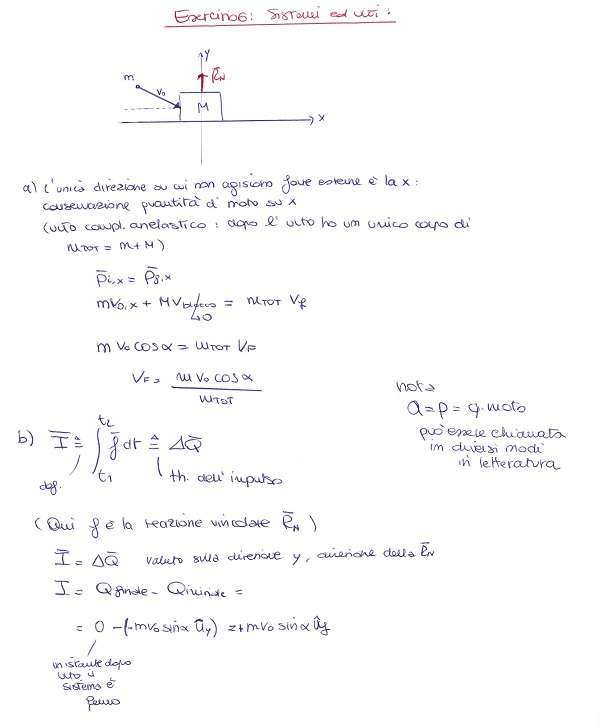 Esercizio 6: Sistemi ed urti:
y
m
R̄_N
v₀
M
x
a) L'unica direzione su cui non agiscono forze esterne è la x:
conservazione quantità di moto su x
(urto compl. anelastico: dopo l'urto ho un unico corpo di
m_TOT = m + M)
p̄_i,x = p̄_f,x
mv₀,x + Mv_blocco = m_TOT V_f
↳0
m v₀ cos α = m_TOT V_F
V_F = m v₀ cos α / m_TOT
nota
Q = p = q. moto
può essere chiamata
in diversi modi
in letteratura
b) Ī ≙ ∫_t₁^t₂ f̄ dt ≙ ΔQ̄
def. th. dell'impulso
(Qui f è la reazione vincolare R̄_N)
Ī = ΔQ̄ valuto sulla direzione y, direzione della R̄_N
I = Q finale - Q iniziale =
= 0 - (-mv₀ sin α û_y) = +mv₀ sin α û_y
in istante dopo
urto il
sistema è
fermo